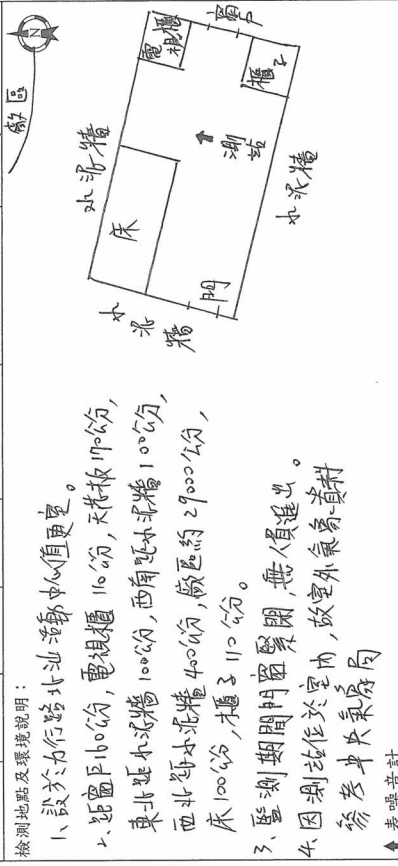 檢測地點及環境說明：
1、設於力行路北汕活動中心值更室。
2、距窗戶160公分，電視櫃110公分，天花板170公分，
東北距水泥牆100公分，西南距水泥牆100公分，
西北距水泥牆400公分，廠區約29000公分，
床100公分，櫃子110公分。
3、監測期間門窗緊閉，無人員進出。
4、因測站位於室內，故室外氣象資料
參考中央氣象局
▲表噪音計
廠區
N
水泥牆
電視櫃
窗戶
床
測站
櫃子
水泥牆
門
水泥牆